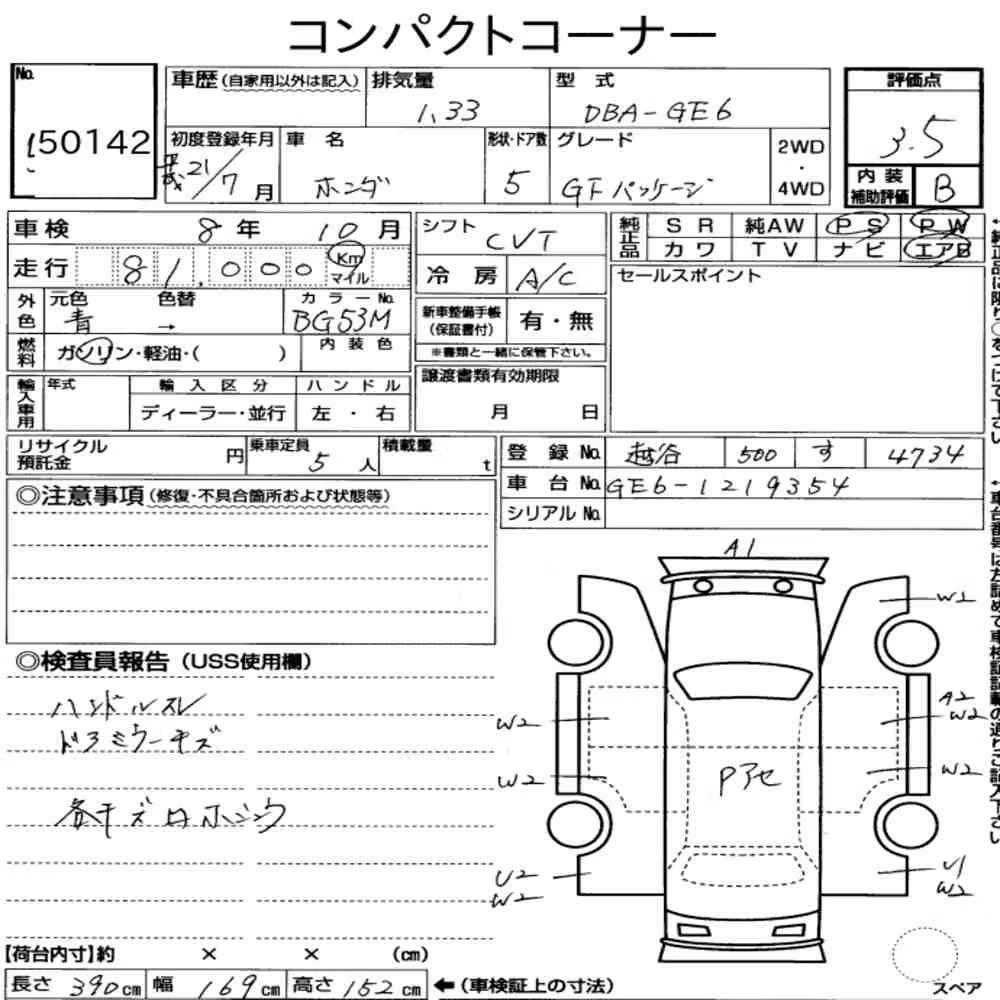 コンパクトコーナー
No.
150142
車歴(自家用以外は記入)
排気量
1.33
型式
DBA-GE6
評価点
3.5
初度登録年月
平成21/7月
車名
ホンダ
形状・ドア数
5
グレード
GFパッケージ
2WD
・
4WD
内装
補助評価
B
車検 8年 10月
走行 81,000 Km
マイル
シフト
CVT
冷房 A/C
純正品
SR 純AW PS PW
カワ TV ナビ エアB
セールスポイント
外色
元色
青
色替
→
カラーNo.
BG53M
新車整備手帳
(保証書付)
有・無
※書類と一緒に保管下さい。
燃料
ガソリン・軽油・( )
内装色
輸入車用
年式
輸入区分
ディーラー・並行
ハンドル
左・右
譲渡書類有効期限
月 日
リサイクル
預託金
円
乗車定員
5人
積載量
t
登録No. 越谷 500 す 4734
車台No. GE6-1219354
シリアルNo.
◎注意事項(修復・不具合箇所および状態等)
◎検査員報告(USS使用欄)
ハンドルスレ
ドアミラーキズ
各キズ凹ホシュウ
A1
W1
W2
A2
W2
W2
W2
Pアセ
U2
W2
U1
W2
スペア
【荷台内寸】約 × × (cm)
長さ 390cm 幅 169cm 高さ 152cm ←(車検証上の寸法)